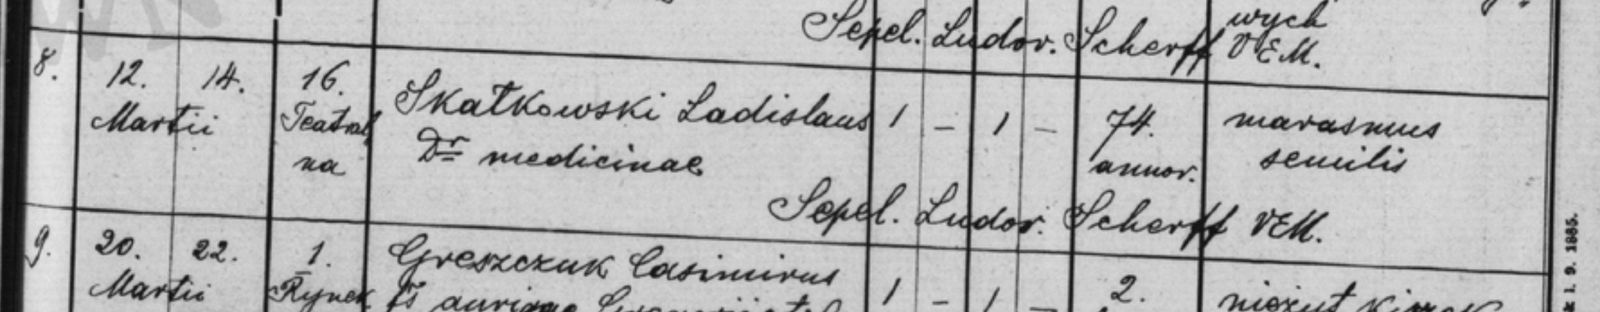 wych
Sepel. Ludov. Scherff VEM.
8. 12. 14. 16. Skatkowski Ladislaus 1 – 1 – 74. marasmus
Martii Teatral Dr medicinae annor. senilis
na
Sepel. Ludov. Scherff VEM.
9. 20. 22. 1. Greszczuk Casimirus 1 – 1 – 2.
Martii Rynek
k 1. 9. 1885.